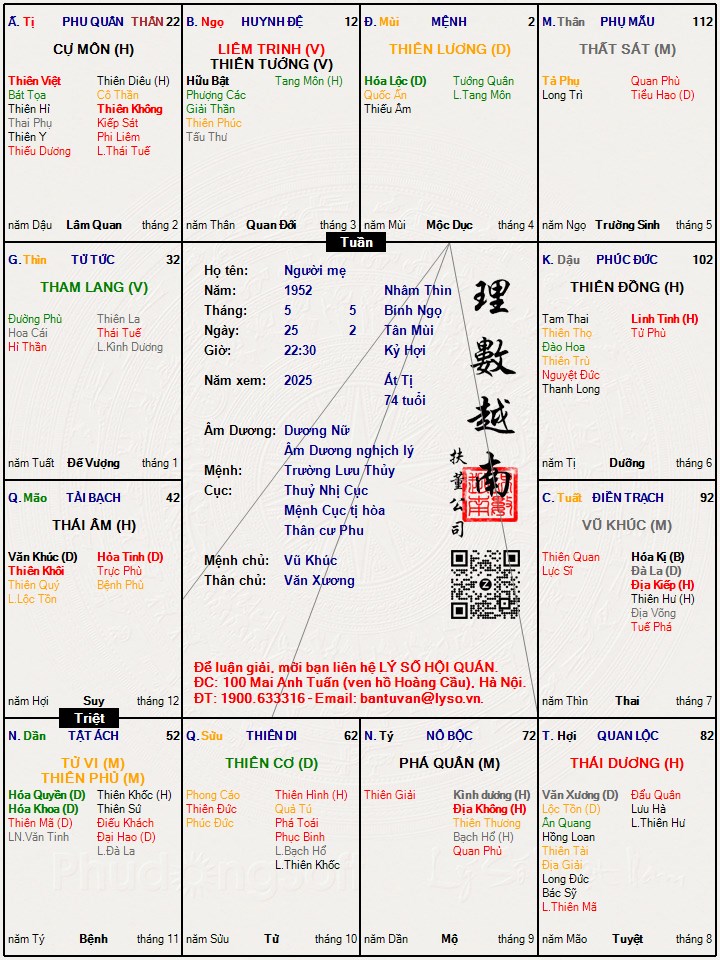 Ấ. Tị PHU QUÂN THÂN 22
CỰ MÔN (H)
Thiên Việt Thiên Diêu (H)
Bát Tọa Cô Thần
Thiên Hỉ Thiên Không
Thai Phụ Kiếp Sát
Thiên Y Phi Liêm
Thiếu Dương L.Thái Tuế
năm Dậu Lâm Quan tháng 2
B. Ngọ HUYNH ĐỆ 12
LIÊM TRINH (V)
THIÊN TƯỚNG (V)
Hữu Bật Tang Môn (H)
Phượng Các
Giải Thần
Thiên Phúc
Tấu Thư
năm Thân Quan Đới tháng 3
Đ. Mùi MỆNH 2
THIÊN LƯƠNG (D)
Hóa Lộc (D) Tướng Quân
Quốc Ấn L.Tang Môn
Thiếu Âm
năm Mùi Mộc Dục tháng 4
M. Thân PHỤ MẪU 112
THẤT SÁT (M)
Tả Phụ Quan Phù
Long Trì Tiểu Hao (D)
năm Ngọ Trường Sinh tháng 5
Tuần
G. Thìn TỬ TỨC 32
THAM LANG (V)
Đường Phù Thiên La
Hoa Cái Thái Tuế
Hỉ Thần L.Kình Dương
năm Tuất Đế Vượng tháng 1
Họ tên: Người mẹ
Năm: 1952 Nhâm Thìn
Tháng: 5 5 Bính Ngọ
Ngày: 25 2 Tân Mùi
Giờ: 22:30 Kỷ Hợi
Năm xem: 2025 Ất Tị
74 tuổi
Âm Dương: Dương Nữ
Âm Dương nghịch lý
Mệnh: Trường Lưu Thủy
Cục: Thuỷ Nhị Cục
Mệnh Cục tị hòa
Thân cư Phu
Mệnh chủ: Vũ Khúc
Thân chủ: Văn Xương
理數越南
扶董公司
Để luận giải, mời bạn liên hệ LÝ SỐ HỘI QUÁN.
ĐC: 100 Mai Anh Tuấn (ven hồ Hoàng Cầu), Hà Nội.
ĐT: 1900.633316 - Email: bantuvan@lyso.vn.
K. Dậu PHÚC ĐỨC 102
THIÊN ĐỒNG (H)
Tam Thai Linh Tinh (H)
Thiên Thọ Tử Phù
Đào Hoa
Thiên Trù
Nguyệt Đức
Thanh Long
năm Tị Dưỡng tháng 6
Q. Mão TÀI BẠCH 42
THÁI ÂM (H)
Văn Khúc (D) Hỏa Tinh (D)
Thiên Khôi Trực Phù
Thiên Quý Bệnh Phù
L.Lộc Tồn
năm Hợi Suy tháng 12
C. Tuất ĐIỀN TRẠCH 92
VŨ KHÚC (M)
Thiên Quan Hóa Kị (B)
Lực Sĩ Đà La (D)
Địa Kiếp (H)
Thiên Hư (H)
Địa Võng
Tuế Phá
năm Thìn Thai tháng 7
Triệt
N. Dần TẬT ÁCH 52
TỬ VI (M)
THIÊN PHỦ (M)
Hóa Quyền (D) Thiên Khốc (H)
Hóa Khoa (D) Thiên Sứ
Thiên Mã (D) Điếu Khách
LN.Văn Tinh Đại Hao (D)
L.Đà La
năm Tý Bệnh tháng 11
Q. Sửu THIÊN DI 62
THIÊN CƠ (D)
Phong Cáo Thiên Hình (H)
Thiên Đức Quả Tú
Phúc Đức Phá Toái
Phục Binh
L.Bạch Hổ
L.Thiên Khốc
năm Sửu Tử tháng 10
N. Tý NÔ BỘC 72
PHÁ QUÂN (M)
Thiên Giải Kình dương (H)
Địa Không (H)
Thiên Thương
Bạch Hổ (H)
Quan Phủ
năm Dần Mộ tháng 9
T. Hợi QUAN LỘC 82
THÁI DƯƠNG (H)
Văn Xương (D) Đẩu Quân
Lộc Tồn (D) Lưu Hà
Ân Quang L.Thiên Hư
Hồng Loan
Thiên Tài
Địa Giải
Long Đức
Bác Sỹ
L.Thiên Mã
năm Mão Tuyệt tháng 8